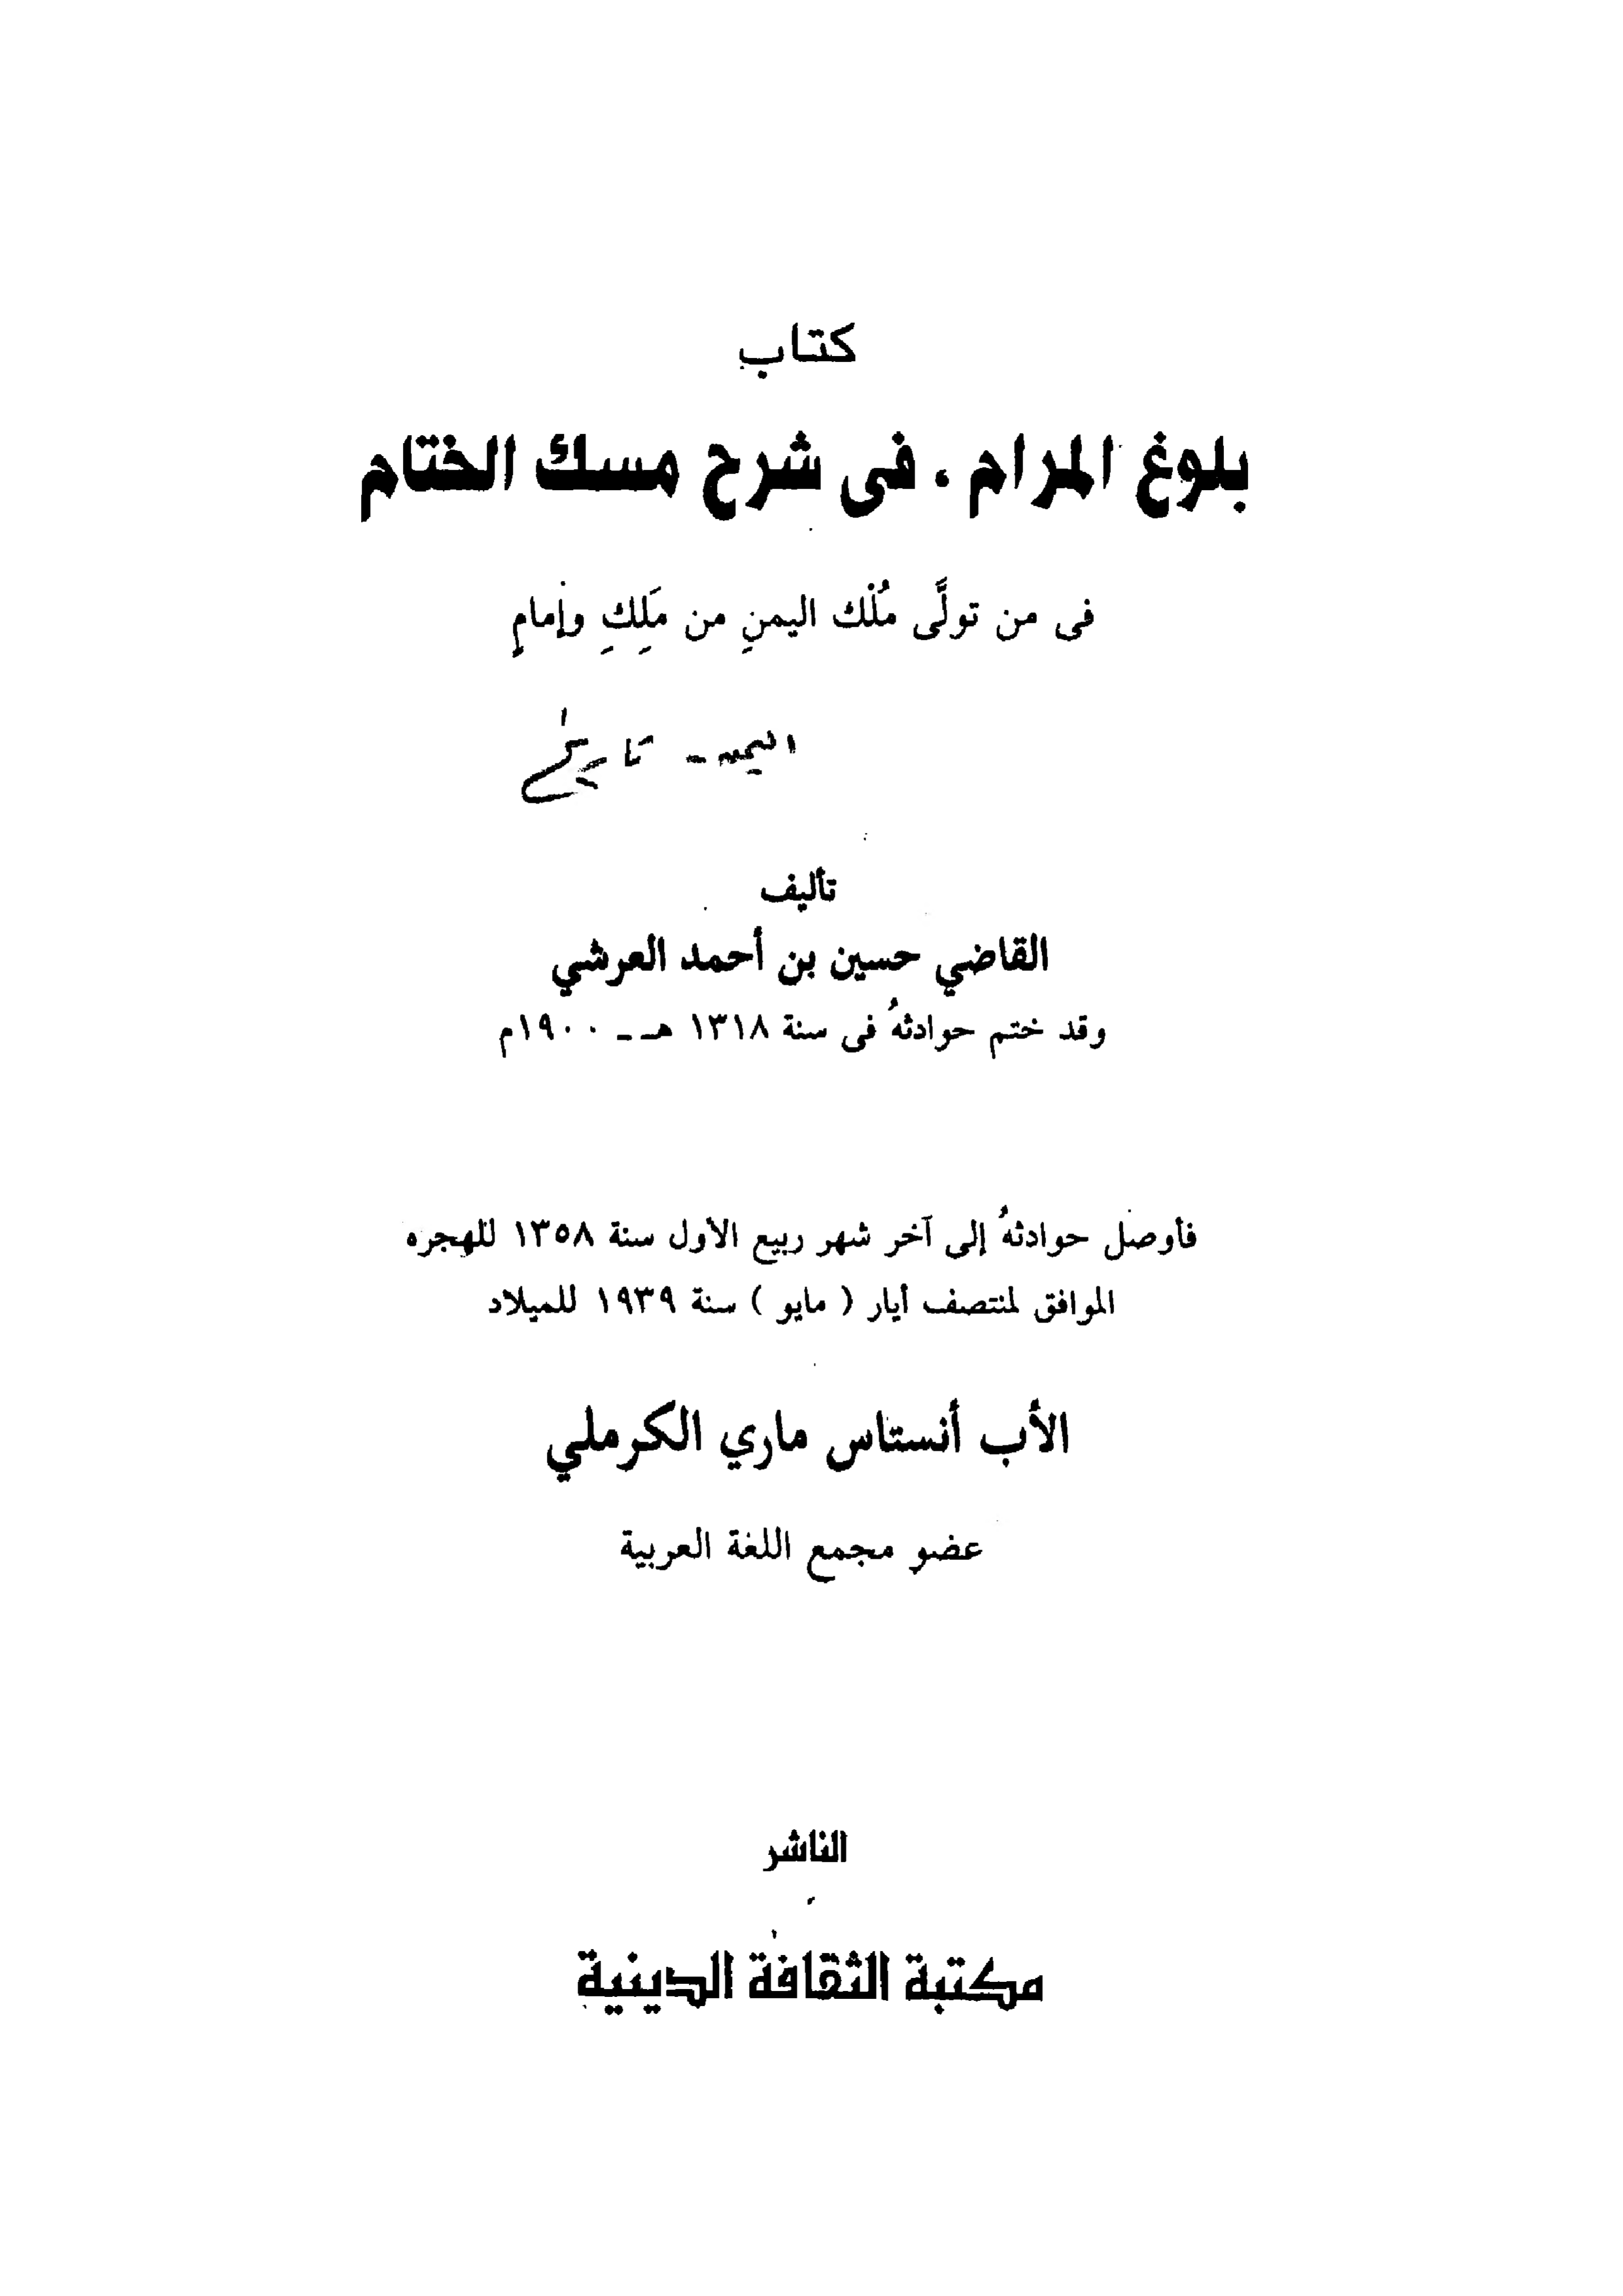 كتاب
بلوغ المرام . فى شرح مسك الختام
فى من تولَّى مُلْك اليمنِ من مَلِكِ وإمامٍ
اليمن - تاريخ
تأليف
القاضي حسين بن أحمد العرشي
وقد ختم حوادثهُ فى سنة ١٣١٨ هـ ـ ١٩٠٠م
فأوصل حوادثهُ إلى آخر شهر ربيع الأول سنة ١٣٥٨ للهجره
الموافق لمنتصف أيار ( مايو ) سنة ١٩٣٩ للميلاد
الأب أنستاس ماري الكرملي
عضو مجمع اللغة العربية
الناشر
مكتبة الثقافة الدينية